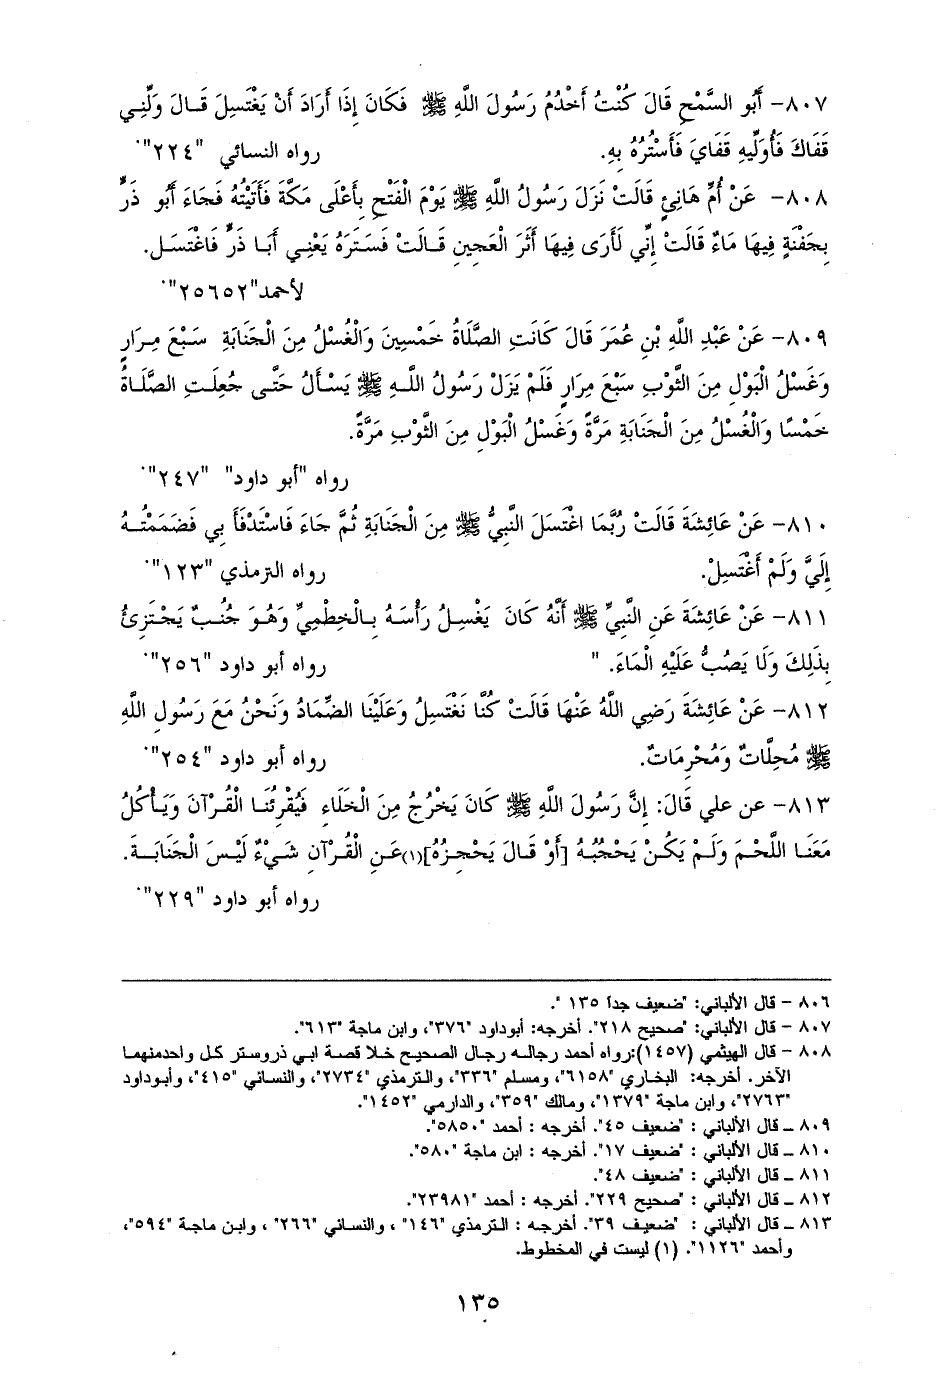 ٨٠٧- أَبُو السَّمْحِ قَالَ كُنْتُ أَخْدُمُ رَسُولَ اللَّهِ ﷺ فَكَانَ إِذَا أَرَادَ أَنْ يَغْتَسِلَ قَالَ وَلِّنِي
قَفَاكَ فَأُوَلِّيهِ قَفَايَ فَأَسْتُرُهُ بِهِ. رواه النسائي "٢٢٤".
٨٠٨- عَنْ أُمِّ هَانِئٍ قَالَتْ نَزَلَ رَسُولُ اللَّهِ ﷺ يَوْمَ الْفَتْحِ بِأَعْلَى مَكَّةَ فَأَتَيْتُهُ فَجَاءَ أَبُو ذَرٍّ
بِجَفْنَةٍ فِيهَا مَاءٌ قَالَتْ إِنِّي لَأَرَى فِيهَا أَثَرَ الْعَجِينِ قَالَتْ فَسَتَرَهُ يَعْنِي أَبَا ذَرٍّ فَاغْتَسَلَ.
لأحمد"٢٥٦٥٢".
٨٠٩- عَنْ عَبْدِ اللَّهِ بْنِ عُمَرَ قَالَ كَانَتِ الصَّلَاةُ خَمْسِينَ وَالْغُسْلُ مِنَ الْجَنَابَةِ سَبْعَ مِرَارٍ
وَغَسْلُ الْبَوْلِ مِنَ الثَّوْبِ سَبْعَ مِرَارٍ فَلَمْ يَزَلْ رَسُولُ اللَّهِ ﷺ يَسْأَلُ حَتَّى جُعِلَتِ الصَّلَاةُ
خَمْسًا وَالْغُسْلُ مِنَ الْجَنَابَةِ مَرَّةً وَغَسْلُ الْبَوْلِ مِنَ الثَّوْبِ مَرَّةً.
رواه "أبو داود" "٢٤٧".
٨١٠- عَنْ عَائِشَةَ قَالَتْ رُبَّمَا اغْتَسَلَ النَّبِيُّ ﷺ مِنَ الْجَنَابَةِ ثُمَّ جَاءَ فَاسْتَدْفَأَ بِي فَضَمَمْتُهُ
إِلَيَّ وَلَمْ أَغْتَسِلْ. رواه الترمذي "١٢٣".
٨١١- عَنْ عَائِشَةَ عَنِ النَّبِيِّ ﷺ أَنَّهُ كَانَ يَغْسِلُ رَأْسَهُ بِالْخِطْمِيِّ وَهُوَ جُنُبٌ يَجْتَزِئُ
بِذَلِكَ وَلَا يَصُبُّ عَلَيْهِ الْمَاءَ. " رواه أبو داود "٢٥٦".
٨١٢- عَنْ عَائِشَةَ رَضِي اللَّهُ عَنْهَا قَالَتْ كُنَّا نَغْتَسِلُ وَعَلَيْنَا الضِّمَادُ وَنَحْنُ مَعَ رَسُولِ اللَّهِ
ﷺ مُحِلَّاتٌ وَمُحْرِمَاتٌ. رواه أبو داود "٢٥٤".
٨١٣- عن علي قَالَ: إِنَّ رَسُولَ اللَّهِ ﷺ كَانَ يَخْرُجُ مِنَ الْخَلَاءِ فَيُقْرِئُنَا الْقُرْآنَ وَيَأْكُلُ
مَعَنَا اللَّحْمَ وَلَمْ يَكُنْ يَحْجُبُهُ [أَوْ قَالَ يَحْجِزُهُ](١)عَنِ الْقُرْآنِ شَيْءٌ لَيْسَ الْجَنَابَةَ.
رواه أبو داود "٢٢٩".
٨٠٦ - قال الألباني: "ضعيف جداً ١٣٥ ".
٨٠٧ - قال الألباني: "صحيح ٢١٨". أخرجه: أبوداود "٣٧٦"، وابن ماجة "٦١٣".
٨٠٨ - قال الهيثمي (١٤٥٧):رواه أحمد رجاله رجال الصحيح خلا قصة ابي ذروستر كل واحدمنهما
الآخر. أخرجه: البخاري "٦١٥٨"، ومسلم "٣٣٦"، والترمذي "٢٧٣٤"، والنسائي "٤١٥"، وأبوداود
"٢٧٦٣"، وابن ماجة "١٣٧٩"، ومالك "٣٥٩"، والدارمي "١٤٥٢".
٨٠٩ ـ قال الألباني : "ضعيف ٤٥". أخرجه : أحمد "٥٨٥٠".
٨١٠ ـ قال الألباني : "ضعيف ١٧". أخرجه : ابن ماجة "٥٨٠".
٨١١ ـ قال الألباني : "ضعيف ٤٨".
٨١٢ ـ قال الألباني : "صحيح ٢٢٩". أخرجه : أحمد "٢٣٩٨١".
٨١٣ ـ قال الألباني : "ضعيف ٣٩". أخرجه : الترمذي "١٤٦" ، والنسائي "٢٦٦" ، وابن ماجة "٥٩٤"،
وأحمد "١١٢٦". (١) ليست في المخطوط.
١٣٥